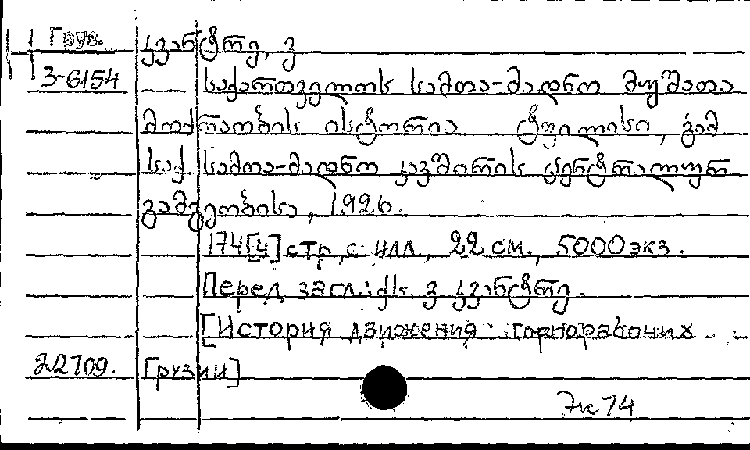 Груз. კვანტრე, ვ
3-6154 საქართველოს სამთა-მადნო მუშათა
მოძრაობის ისტორია ტფილისი, გამ
საქ. სამთა-მადნო კავშირის ცენტრალურ
გამგეობისა, 1926.
174[4] стр., с илл., 22 см., 5000 экз.
Перед загл.: ვ კვანტრე.
[История движения горнорабочих
22709. Грузии]
74